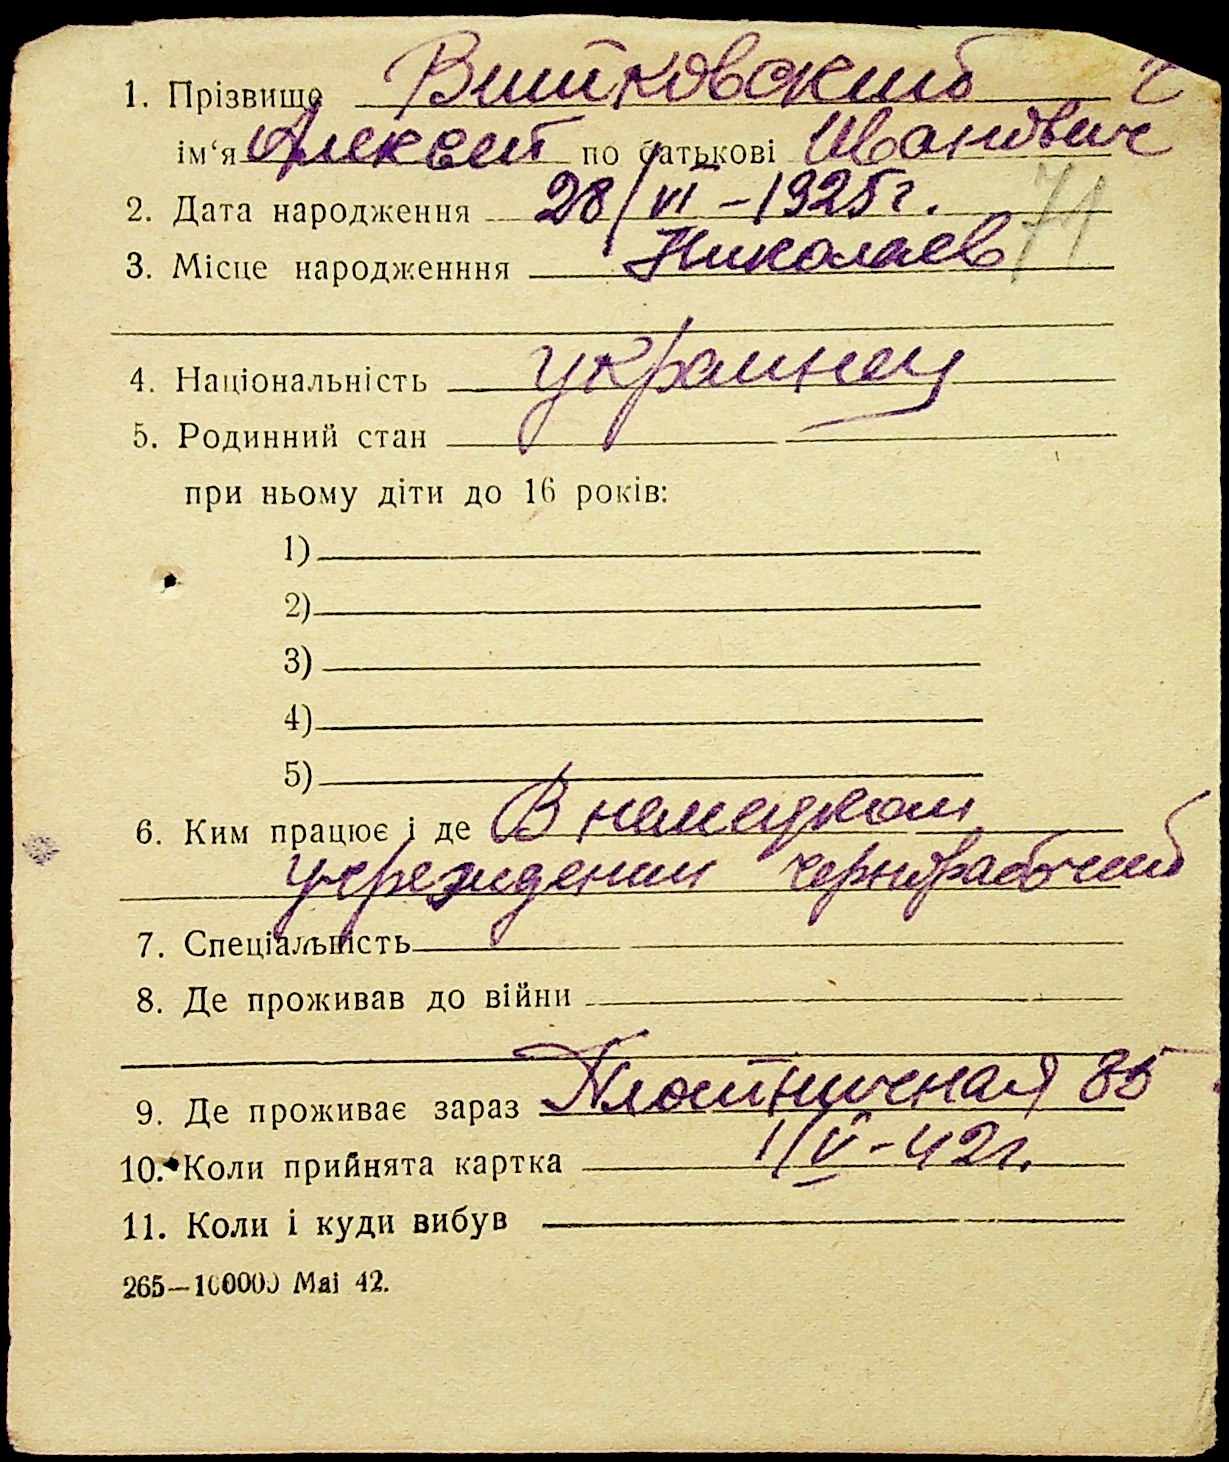 1. Прізвище Витковский
ім‘я Алексей по батькові Иванович
2. Дата народження 28/VI – 1925 г.
71
3. Місце народженння Николаев
4. Національність украинец
5. Родинний стан
при ньому діти до 16 років:
1)
2)
3)
4)
5)
6. Ким працює і де В немецком
учреждении чернорабочий
7. Спеціальність
8. Де проживав до війни
9. Де проживає зараз Плотничная 85
10. Коли прийнята картка 1/V – 42 г.
11. Коли і куди вибув
265—100000 Mai 42.